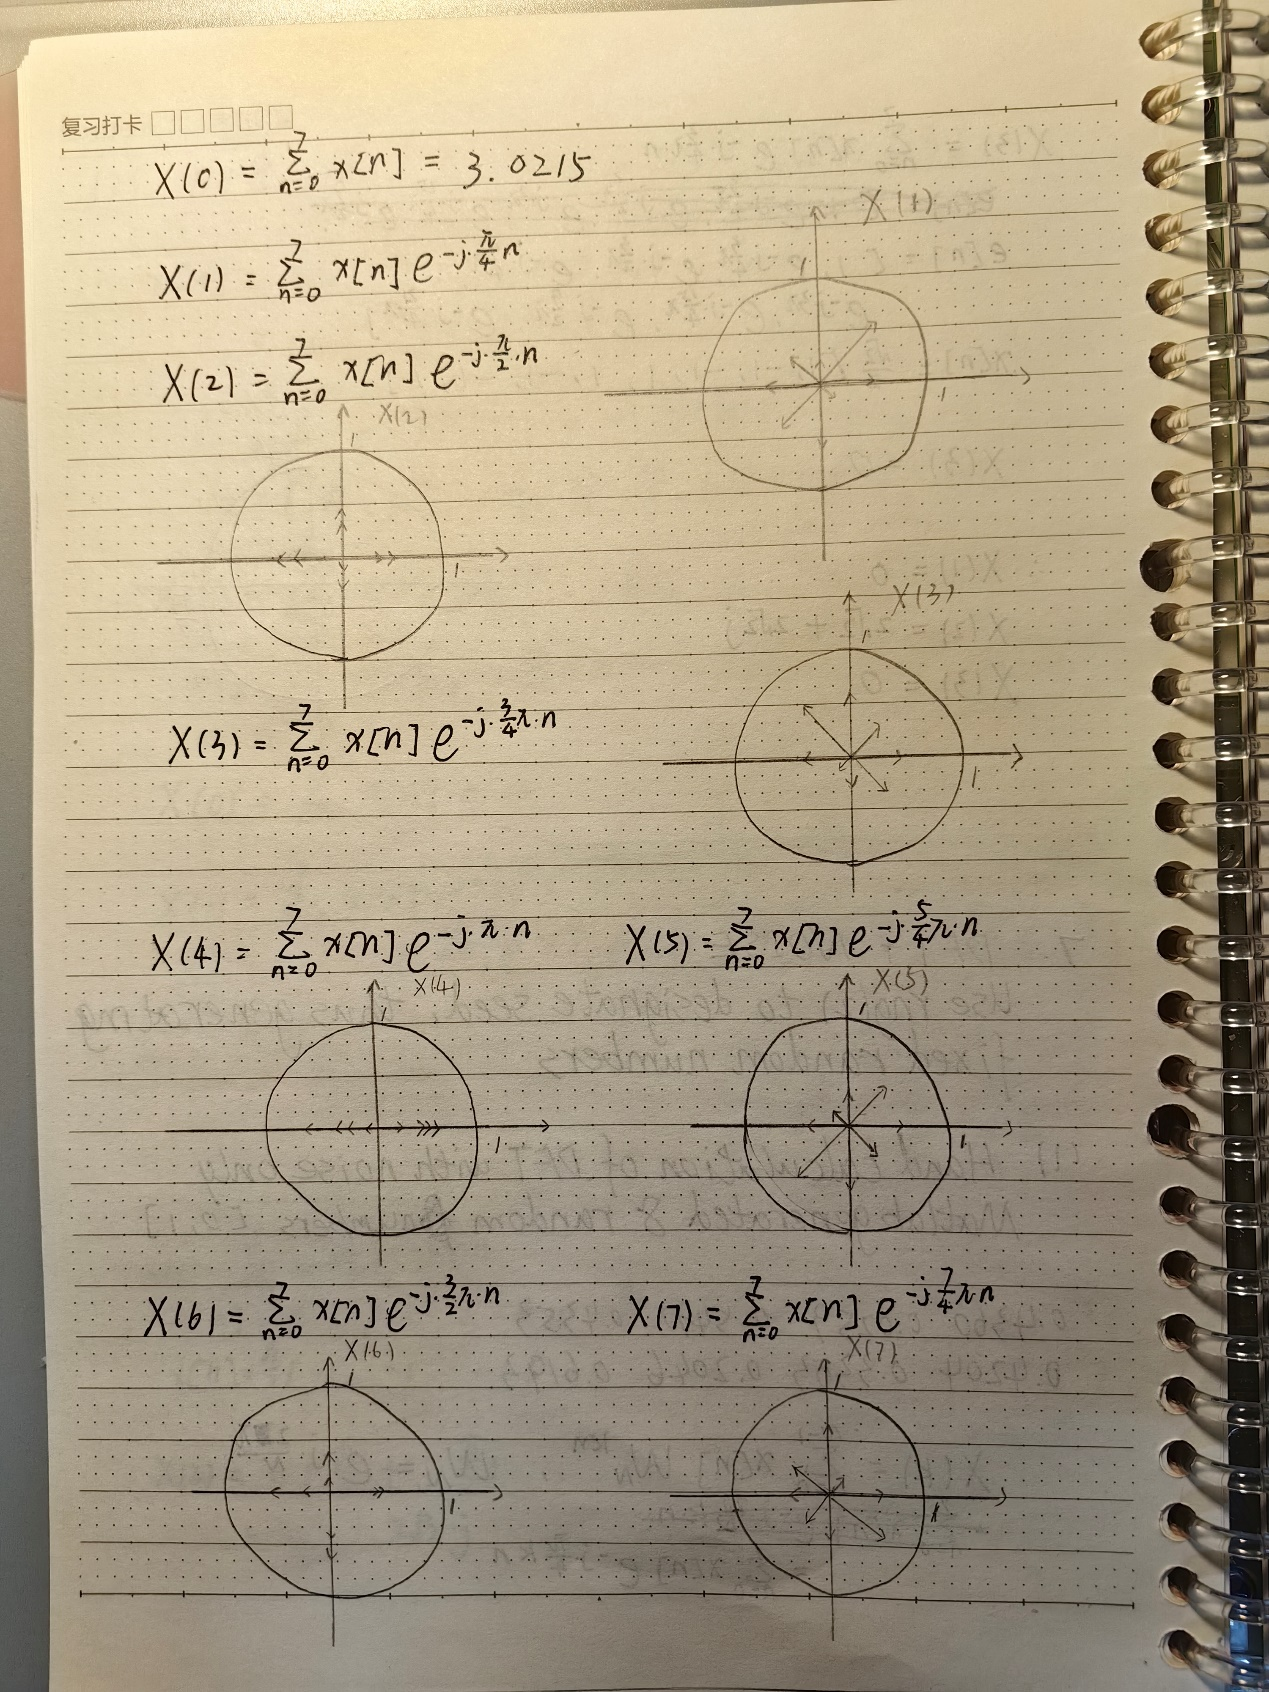 复习打卡
X(0) = \sum_{n=0}^{7} x[n] = 3.0215
X(1) = \sum_{n=0}^{7} x[n] e^{-j·\frac{π}{4}n}
X(1)
1
1
X(2) = \sum_{n=0}^{7} x[n] e^{-j·\frac{π}{2}·n}
X(2)
1
1
X(3)
1
1
X(3) = \sum_{n=0}^{7} x[n] e^{-j·\frac{3}{4}π·n}
X(4) = \sum_{n=0}^{7} x[n] e^{-j·π·n}
X(5) = \sum_{n=0}^{7} x[n] e^{-j·\frac{5}{4}π·n}
X(4)
1
1
X(5)
1
1
X(6) = \sum_{n=0}^{7} x[n] e^{-j·\frac{3}{2}π·n}
X(7) = \sum_{n=0}^{7} x[n] e^{-j\frac{7}{4}π·n}
X(6)
1
1
X(7)
1
1